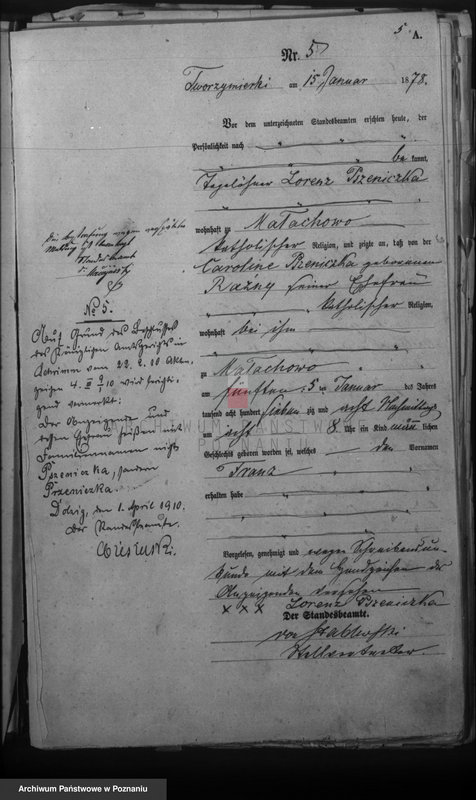 5 A.
Nr. 5
Tworzymirki am 15 Januar 1878.
Vor dem unterzeichneten Standesbeamten erschien heute, der
Persönlichkeit nach
be kannt,
Tagelöhner Lorenz Pszeniczka
wohnhaft zu Małachowo
katholischer Religion, und zeigte an, daß von der
Caroline Pszeniczka geborenen
Razny seiner Ehefrau
katholischer Religion,
wohnhaft bei ihm
zu Małachowo
am fünften 5 Januar des Jahres
tausend acht hundert sieben zig und acht Nachmittags
um acht 8 Uhr ein Kind männlichen
Geschlechts geboren worden sei, welches den Vornamen
Franz
erhalten habe
Vorgelesen, genehmigt und wegen Schreibensun-
kunde mit dem Handzeichen des
Anzeigenden versehen
x x x Lorenz Pszeniczka
Der Standesbeamte.
von
Stellvertreter.
No 5.
Auf Grund des Beschlusses
des Königlichen Amtsgerichts in
Schrimm vom 22. 2. 10 Akten-
zeichen 4. III 9/10 wird berichti-
gend vermerkt:
Der Anzeigende und
dessen Ehefrau führen als
Familiennamen nicht
Pszeniczka, sondern
Przeniczka.
Dolzig, den 1. April 1910.
Der Standesbeamte.
ARCHIWUM PAŃSTWOWE
W POZNANIU
Archiwum Państwowe w Poznaniu